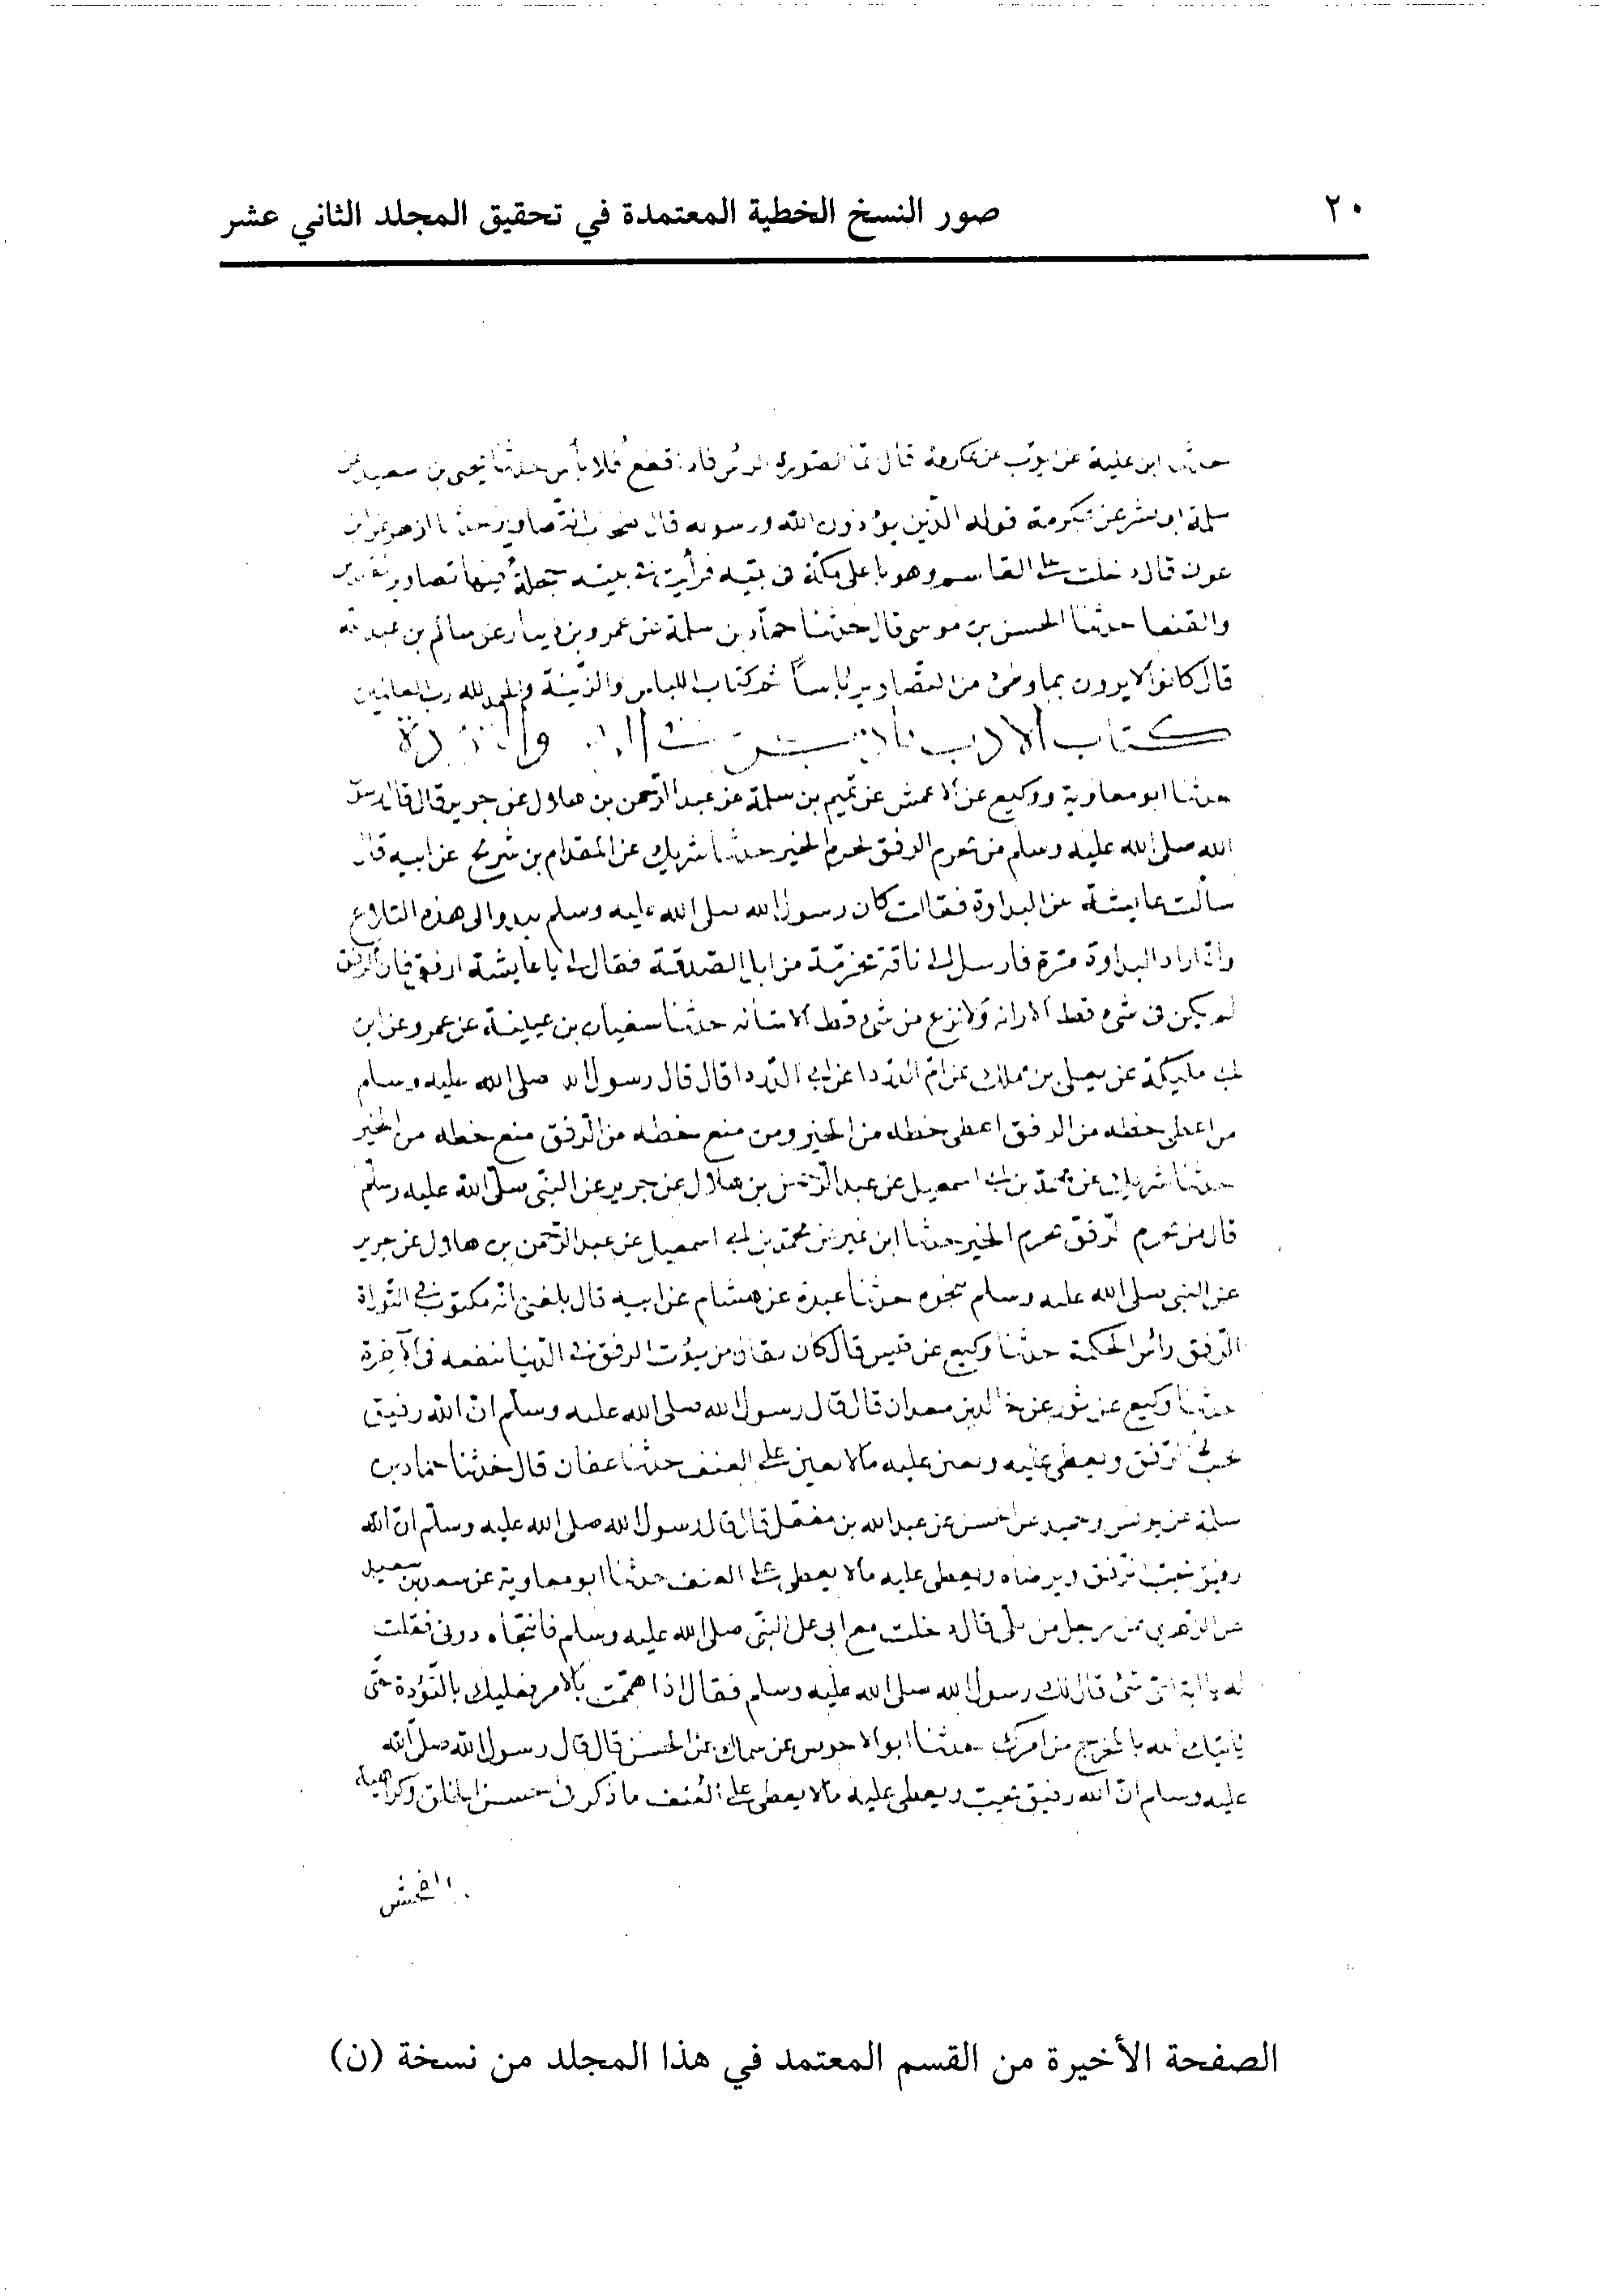 ٢٠ صور النسخ الخطية المعتمدة في تحقيق المجلد الثاني عشر
حدثنا ابن علية عن ايوب عن عكرمة قال الصورة الرأس فاذا قطع فلا بأس حدثنا يحيى بن سعيد عن
سلمة ابى بشر عن عكرمة قوله الذين يؤذون الله ورسوله قال اصحاب التصاوير حدثنا ازهر عن ابن
عون قال دخلت على القاسم وهو باعلى مكة فى بيته فرأيت فى بيته حجلة فيها تصاوير
والعنقا حدثنا الحسن بن موسى قال حدثنا حماد بن سلمة عن عمرو بن دينار عن سالم بن عبد الله
قال كانوا لا يرون بما وطئ من التصاوير باسا تم كتاب اللباس والزينة والحمد لله رب العالمين
كتاب الادب
حدثنا ابو معاوية ووكيع عن الاعمش عن تميم بن سلمة عن عبد الرحمن بن هلال عن جرير قال قال رسول
الله صلى الله عليه وسلم من يحرم الرفق يحرم الخير حدثنا شريك عن المقدام بن شريح عن ابيه قال
سالت عايشة عن البداوة فقالت كان رسول الله صلى الله عليه وسلم يبدو الى هذه التلاع
وانه اراد البداوة مرة فارسل الى ناقة محرمة من ابل الصدقة فقال لى يا عايشة ارفقى فان الرفق
لم يكن فى شىء قط الا زانه ولا نزع من شىء قط الا شانه حدثنا سفيان بن عيينة عن عمرو عن ابن
ابى مليكة عن يعلى بن مملك عن ام الدردا عن ابى الدردا قال قال رسول الله صلى الله عليه وسلم
من اعطى حظه من الرفق اعطى حظه من الخير ومن منع حظه من الرفق منع حظه من الخير
حدثنا شريك عن محمد بن ابى اسمعيل عن عبد الرحمن بن هلال عن جرير عن النبى صلى الله عليه وسلم
قال من يحرم الرفق يحرم الخير حدثنا ابن نمير عن محمد بن ابى اسمعيل عن عبد الرحمن بن هلال عن جرير
عن النبى صلى الله عليه وسلم بنحوه حدثنا عبدة عن هشام عن ابيه قال بلغنى انه مكتوب فى التوراة
الرفق رأس الحكمة حدثنا وكيع عن قيس قال كان يقال من يؤت الرفق فى الدنيا ينفعه فى الآخرة
حدثنا وكيع عن ثور عن خالد بن معدان قال قال رسول الله صلى الله عليه وسلم ان الله رفيق
يحب الرفق ويعطى عليه ويعين عليه ما لا يعين على العنف حدثنا عفان قال حدثنا حماد بن
سلمة عن يونس وحميد عن الحسن عن عبد الله بن مغفل قال قال رسول الله صلى الله عليه وسلم ان الله
رفيق يحب الرفق ويرضاه ويعطى عليه ما لا يعطى على العنف حدثنا ابو معاوية عن سعد بن سعيد
عن الزهرى عن رجل من بلى قال دخلت مع ابى على النبى صلى الله عليه وسلم فانتجاه دونى فقلت
له يا ابة اى شئ قال لك رسول الله صلى الله عليه وسلم فقال اذا هممت بالامر فعليك بالتؤدة حتى
ياتيك الله بالمخرج من امرك حدثنا ابو الاحوص عن سماك عن الحسن قال قال رسول الله صلى الله
عليه وسلم ان الله رفيق يحب ويعطى عليه ما لا يعطى على العنف ما ذكر فى حسن الخلق وكراهية
الفحش
الصفحة الأخيرة من القسم المعتمد في هذا المجلد من نسخة (ن)